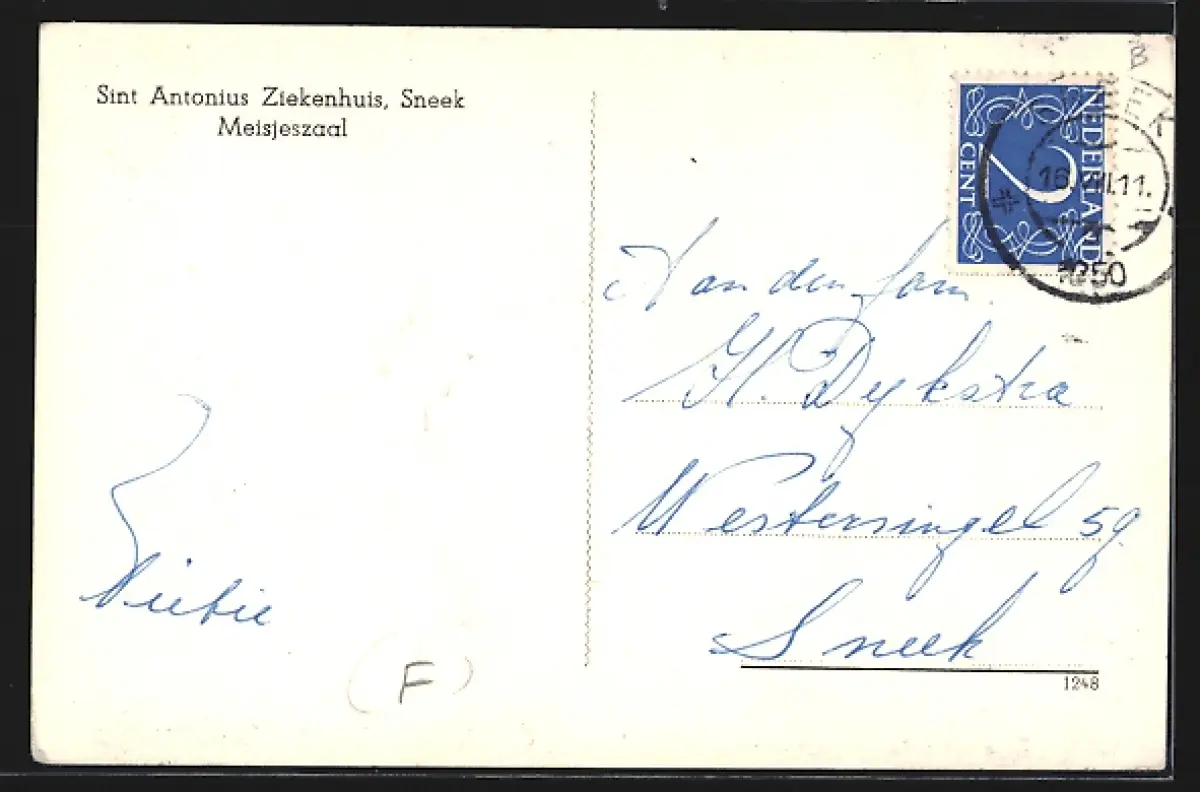 Sint Antonius Ziekenhuis, Sneek
Meisjeszaal
NEDERLAND
2
CENT
16.VIII.11.
1950
Aan den fam.
H. Dykstra
Westersingel 59.
Sneek
1248
(F)